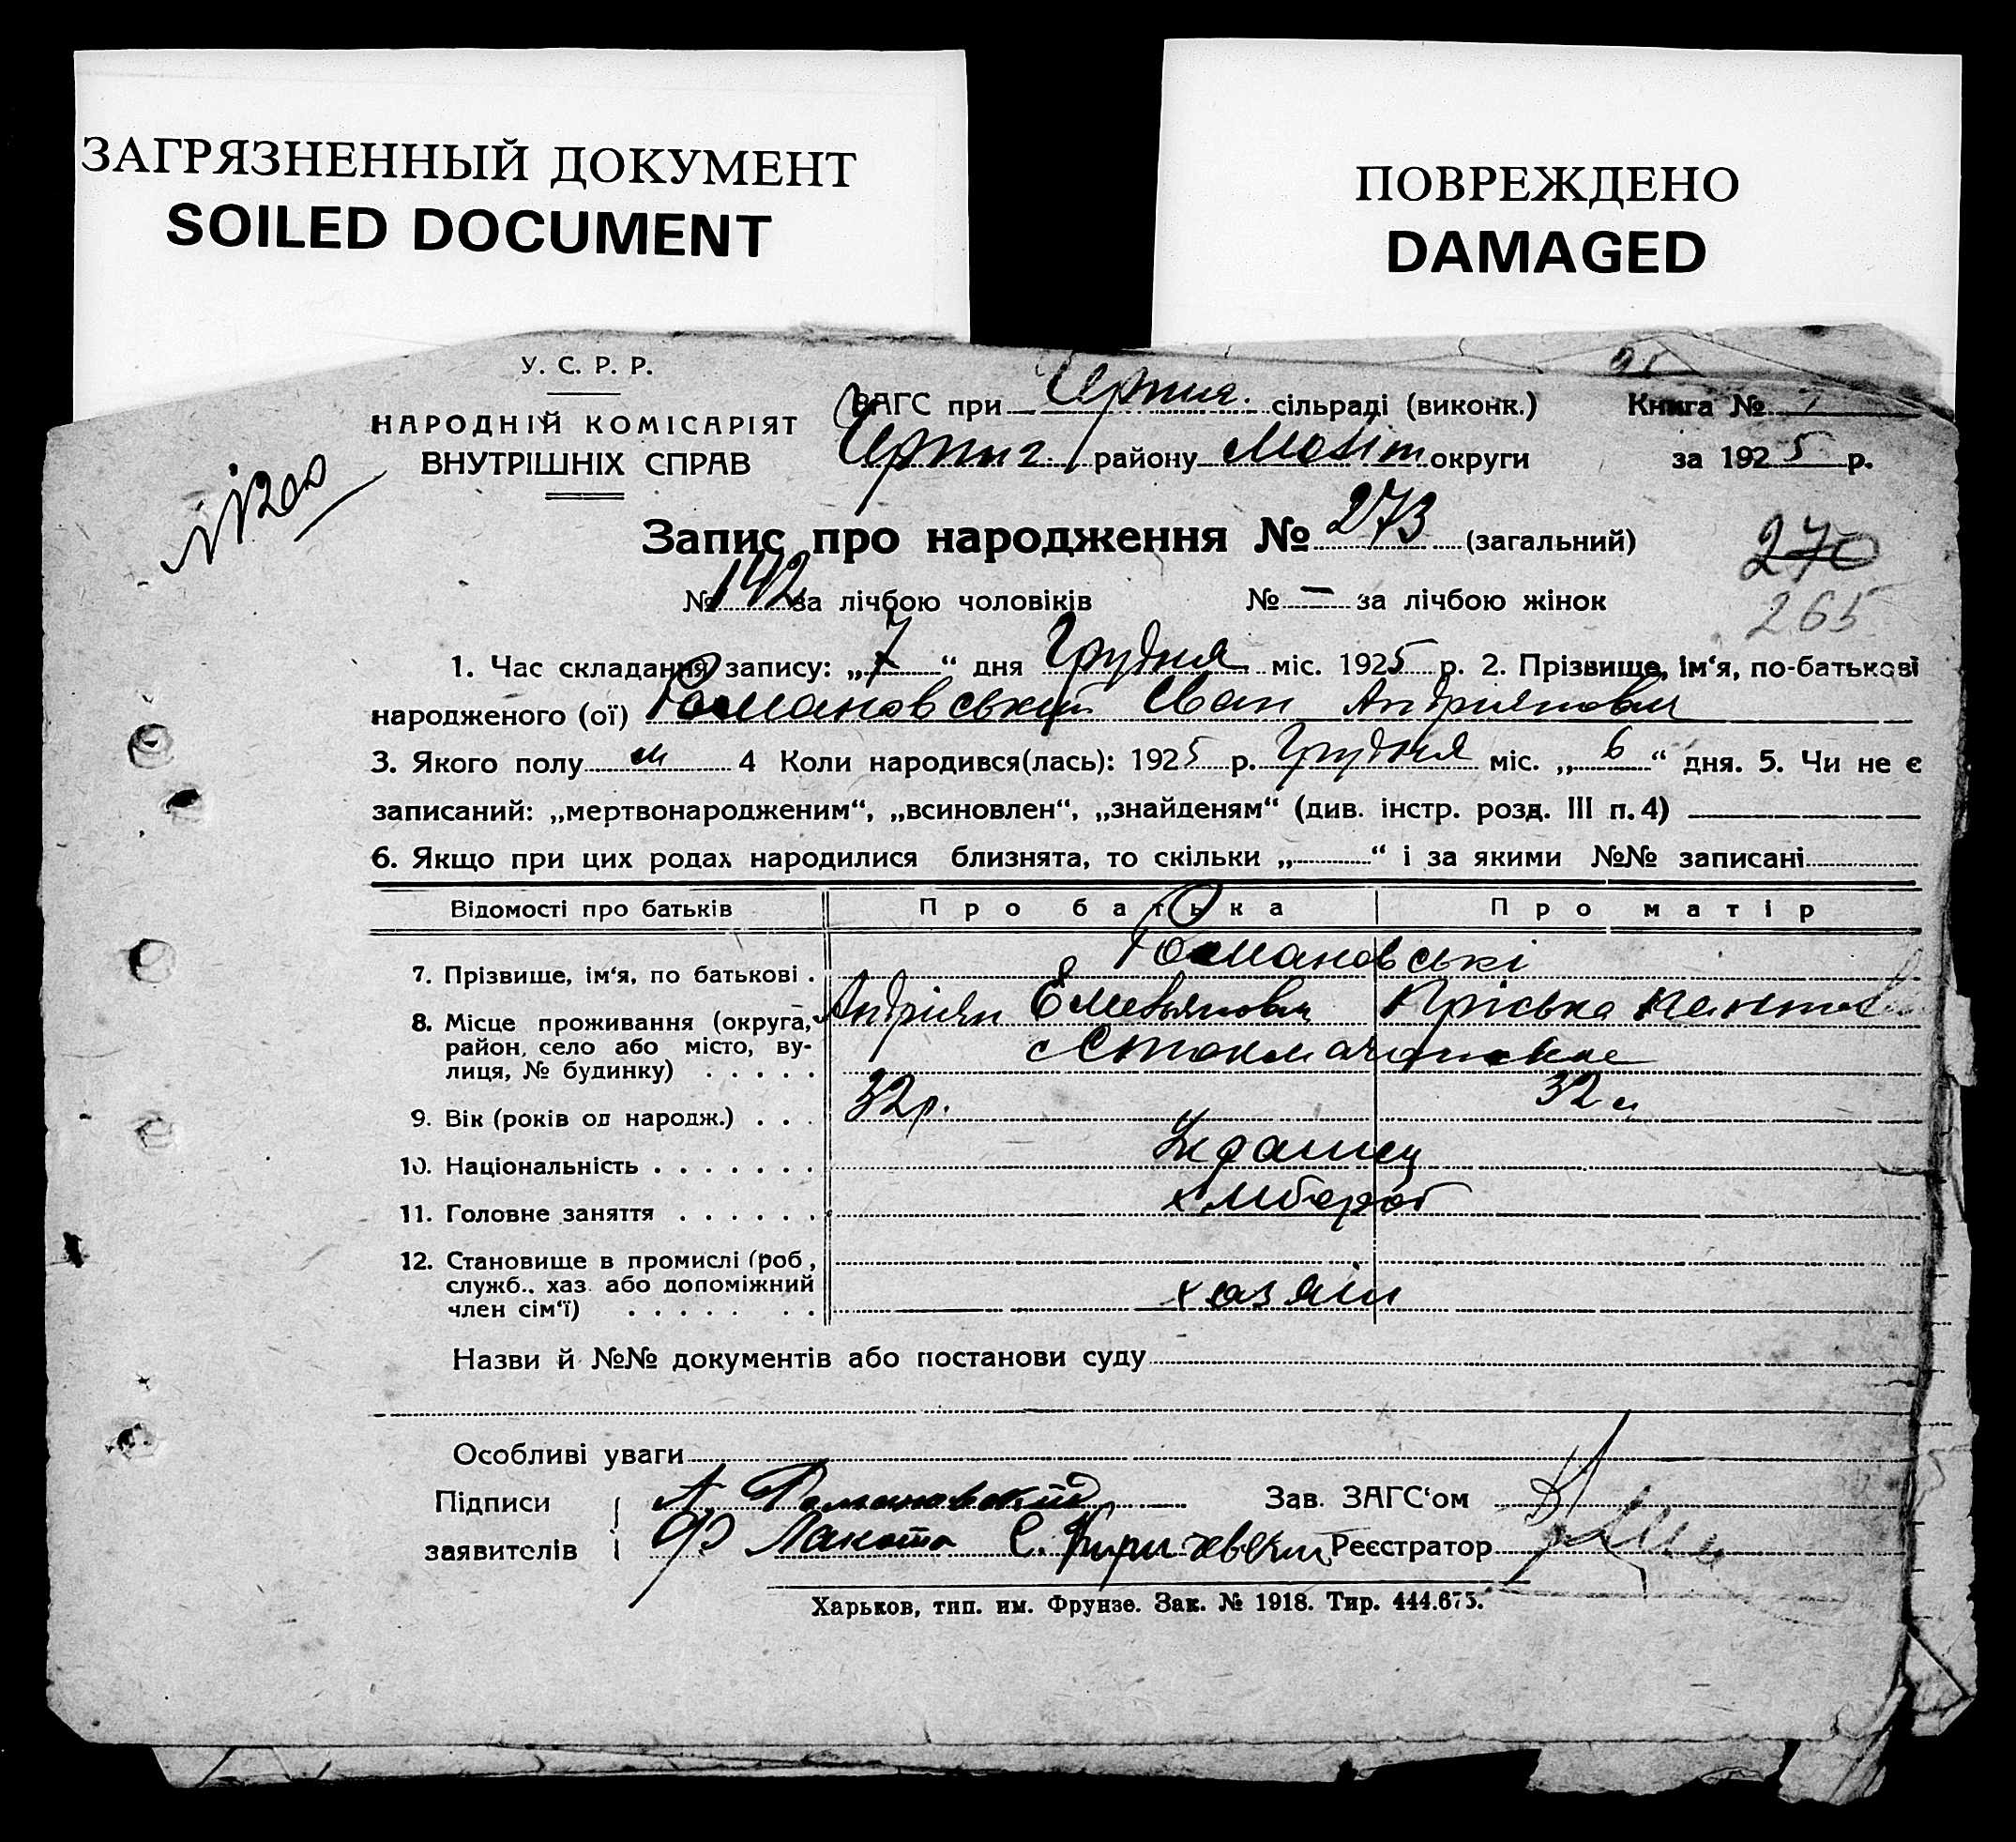 ЗАГРЯЗНЕННЫЙ ДОКУМЕНТ
SOILED DOCUMENT
ПОВРЕЖДЕНО
DAMAGED
У. С. Р. Р.
НАРОДНІЙ КОМІСАРІЯТ
ВНУТРІШНІХ СПРАВ
ЗАГС при сільраді (виконк.) Книга №
району округи за 1925 р.
Запис про народження № 273 (загальний)
270
№ 142 за лічбою чоловіків № – за лічбою жінок
265
1. Час складання запису: „7“ дня Грудня міс. 1925 р. 2. Прізвище, ім‘я, по-батькові
народженого (ої) Романовський Іван Андріянович
3. Якого полу м 4 Коли народився(лась): 1925 р. Грудня міс. „6“ дня. 5. Чи не є
записаний: „мертвонародженим“, „всиновлен“, „знайденям“ (див. інстр. розд. III п. 4)
6. Якщо при цих родах народилися близнята, то скільки „ “ і за якими №№ записані
Відомості про батьків Про батька Про матір
7. Прізвище, ім‘я, по батькові . Романовські
Андріян Емельянович Пріська
8. Місце проживання (округа,
район, село або місто, ву-
лиця, № будинку) . . . . .
9. Вік (років од народж.) . . . 32 р. 32
10. Національність . . . . . . .
11. Головне заняття . . . . . . хлібороб
12. Становище в промислі (роб,
служб., хаз. або допоміжний
член сім‘ї) . . . . . . . хазяїн
Назви й №№ документів або постанови суду
Особливі уваги
Підписи А. Романовский Зав. ЗАГС‘ом
заявителів Ф Лакота С. Реєстратор
Харьков, тип. им. Фрунзе. Зак. № 1918. Тир. 444.675.